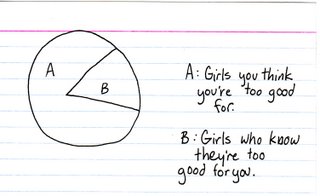 A
B
A: Girls you think
you're too good
for.
B: Girls who know
they're too
good for you.